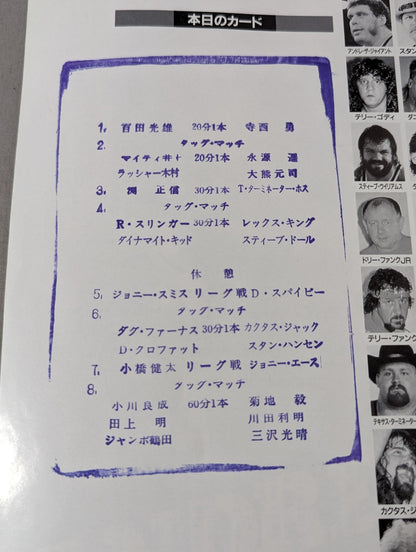 本日のカード
1. 百田光雄 20分1本 寺西 勇
2. タッグ・マッチ
マイティ井上 20分1本 永源 遥
ラッシャー木村 大熊元司
3. 渕 正信 30分1本 T・ターミネーター・ホス
4. タッグ・マッチ
R・スリンガー 30分1本 レックス・キング
ダイナマイト・キッド スティーブ・ドール
休憩
5. ジョニー・スミス リーグ戦 D・スパイビー
6. タッグ・マッチ
ダグ・ファーナス 30分1本 カクタス・ジャック
D・クロファット スタン・ハンセン
7. 小橋健太 リーグ戦 ジョニー・エース
8. タッグ・マッチ
小川良成 60分1本 菊地 毅
田上 明 川田利明
ジャンボ鶴田 三沢光晴
アンドレ・ザ・ジャイアント
スタン
テリー・ゴディ
ダニ
スティーブ・ウイリアムス
ドリー・ファンクJR
テリー・ファンク
テキサス・ターミネーター
カクタス・ジ